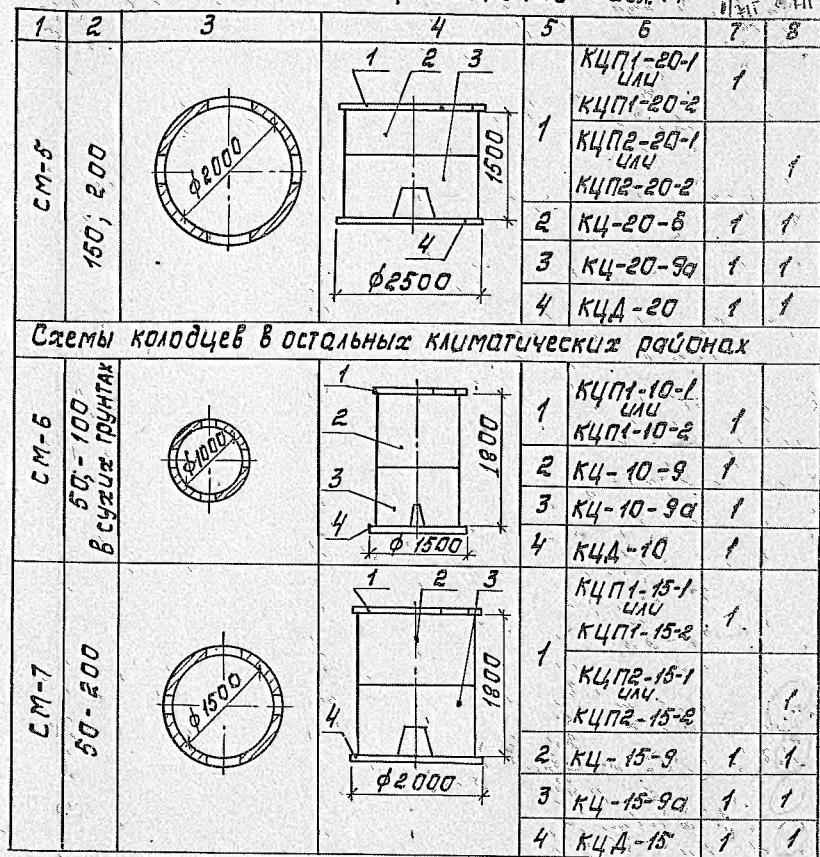 1 2 3 4 5 6 7 8
СМ-5
150; 200
ϕ2000
1 2 3
1500
4
ϕ2500
1 КЦП1-20-1
или
КЦП1-20-2
1
КЦП2-20-1
или
КЦП2-20-2
1
2 КЦ-20-6 1 1
3 КЦ-20-9а 1 1
4 КЦД-20 1 1
Схемы колодцев в остальных климатических районах
СМ-6
50;-100
в сухих грунтах
ϕ1000
1
2
3
4
1800
ϕ1500
1 КЦП1-10-1
или
КЦП1-10-2
1
2 КЦ-10-9 1
3 КЦ-10-9а 1
4 КЦД-10 1
СМ-7
50-200
ϕ1500
1 2 3
1800
4
ϕ2000
1 КЦП1-15-1
или
КЦП1-15-2
1
КЦП2-15-1
или
КЦП2-15-2
1
2 КЦ-15-9 1 1
3 КЦ-15-9а 1 1
4 КЦД-15 1 1